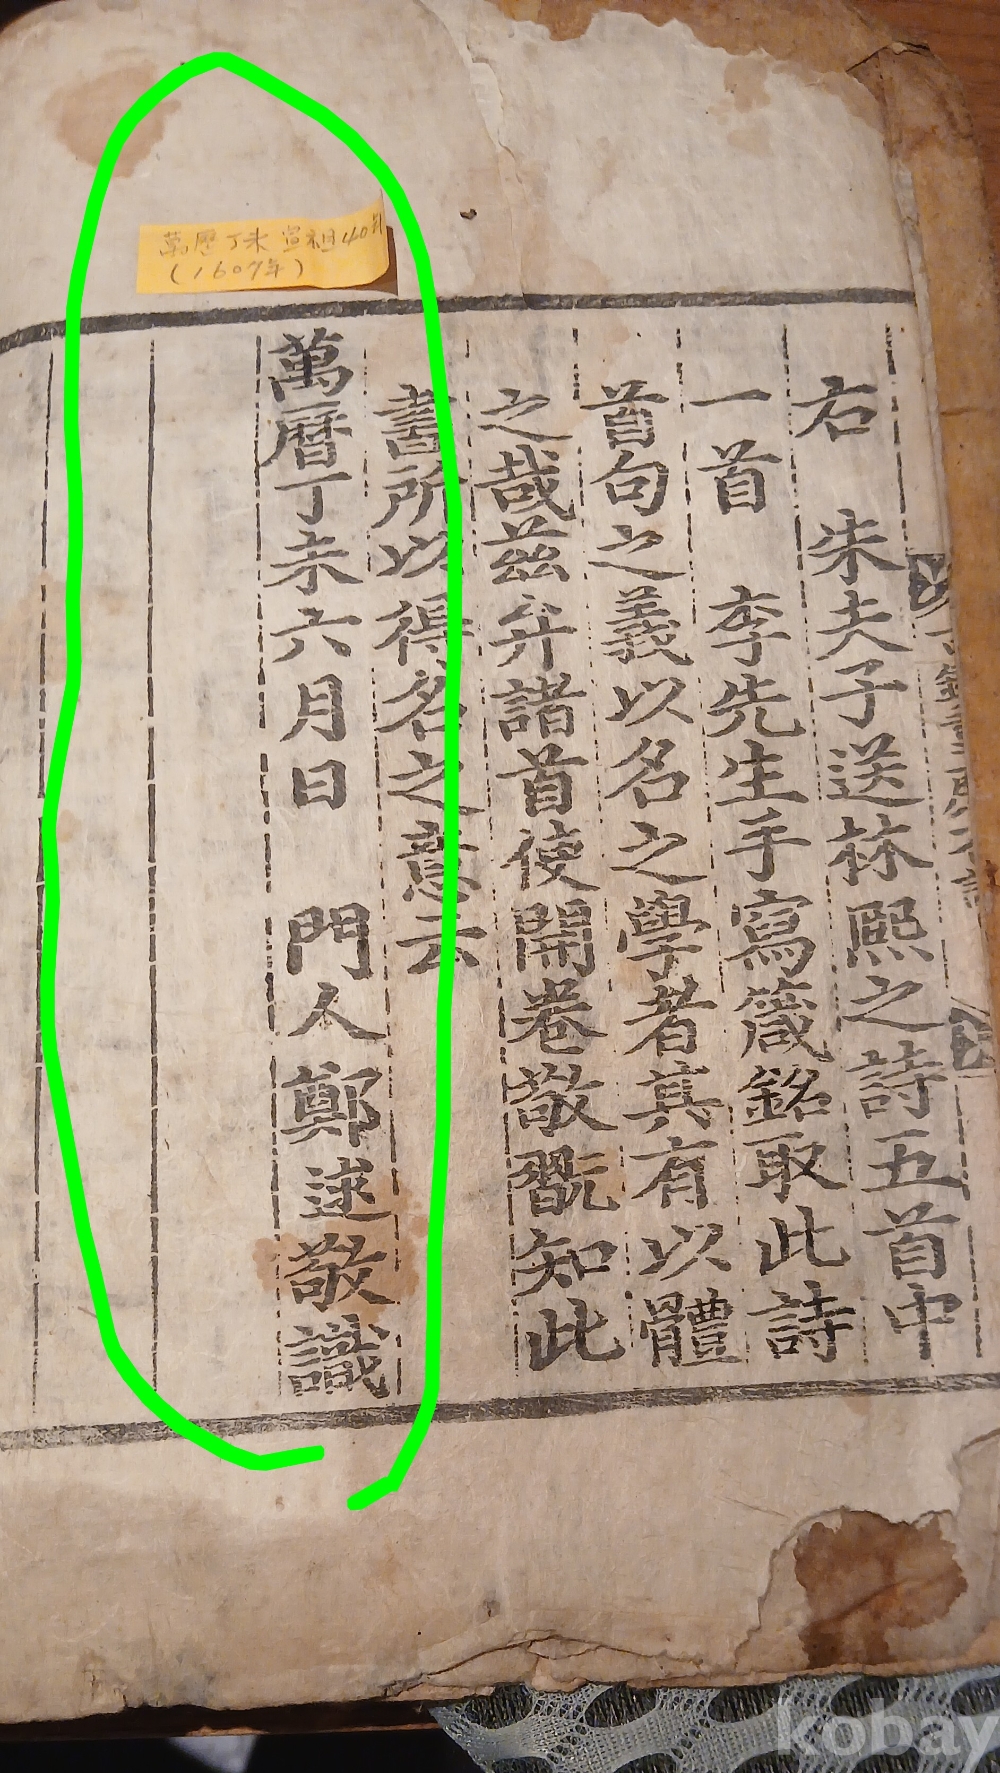 萬歷丁未 宣祖40年
(1607年)
右 朱夫子送林熙之詩五首中
一首 李先生手寫箴銘取此詩
首句之義以名之學者其有以體
之哉玆弁諸首使開卷敬翫知此
書所以得名之意云
萬曆丁未六月日 門人鄭逑敬識
kobay